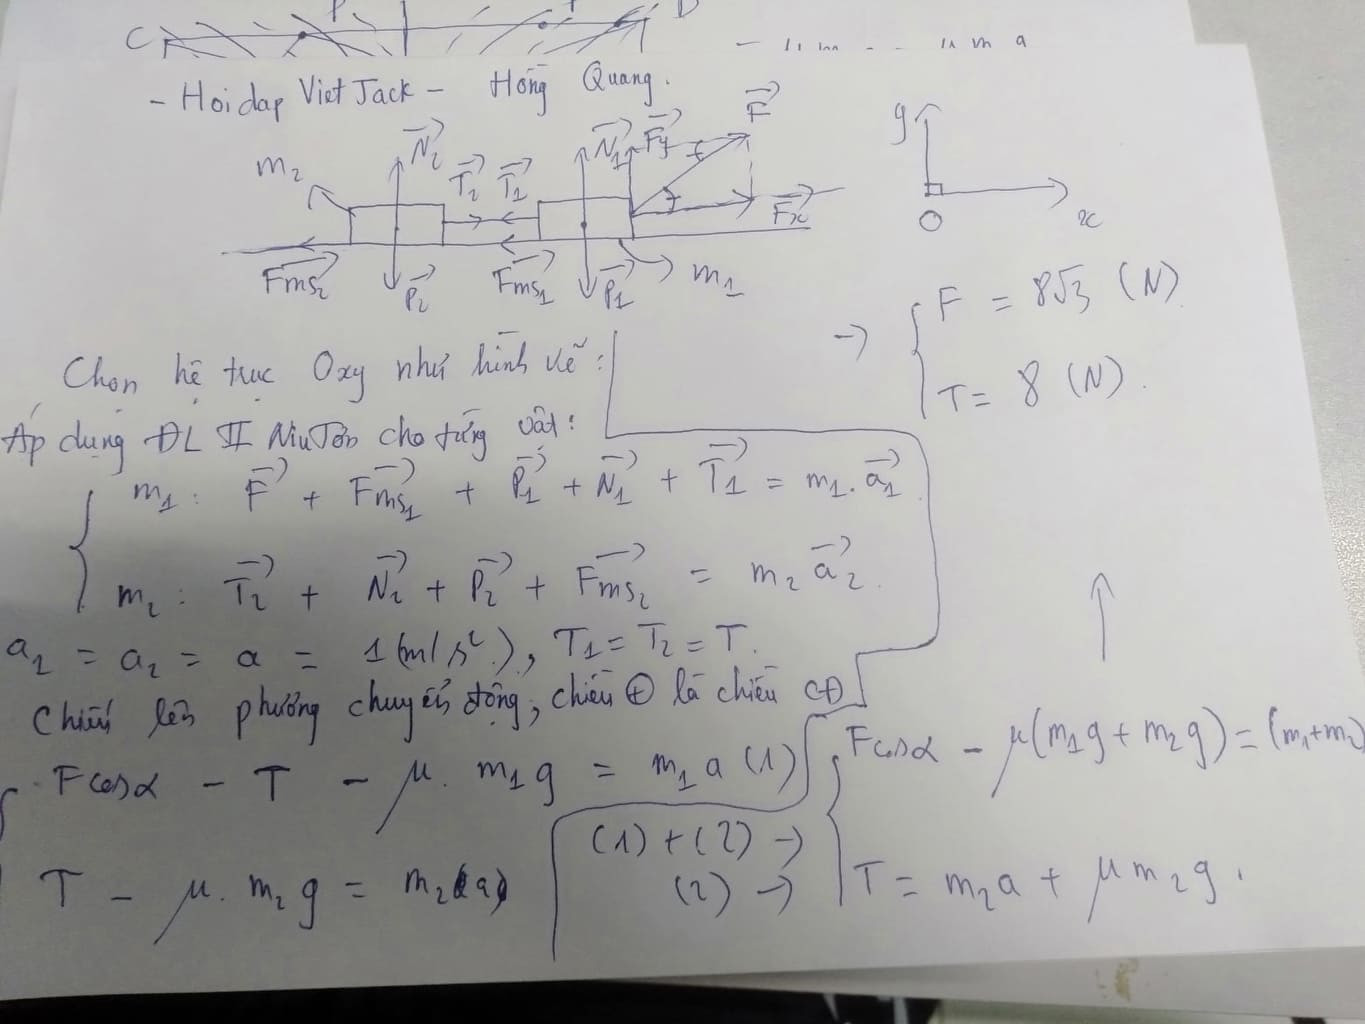 C
D
- Hoidap VietJack - Hồng Quang.
m₂ N₂ T₂ T₁ N₁ Fy F Fx
Fms₂ P₂ Fms₁ P₁ m₁
y
O x
→ { F = 8√3 (N)
T = 8 (N).
Chọn hệ trục Oxy như hình vẽ:
Áp dụng ĐL II NiuTơn cho từng vật:
m₁: F + Fms₁ + P₁ + N₁ + T₁ = m₁.a₁
m₂: T₂ + N₂ + P₂ + Fms₂ = m₂ a₂.
a₁ = a₂ = a = 1 (m/s²), T₁ = T₂ = T.
Chiếu lên phương chuyển động, chiều ⊕ là chiều CĐ
Fcosα - T - μ. m₁g = m₁a (1)
T - μ. m₂g = m₂a
(1) + (2) →
(2) →
Fcosα - μ(m₁g + m₂g) = (m₁+m₂)
T = m₂a + μm₂g.